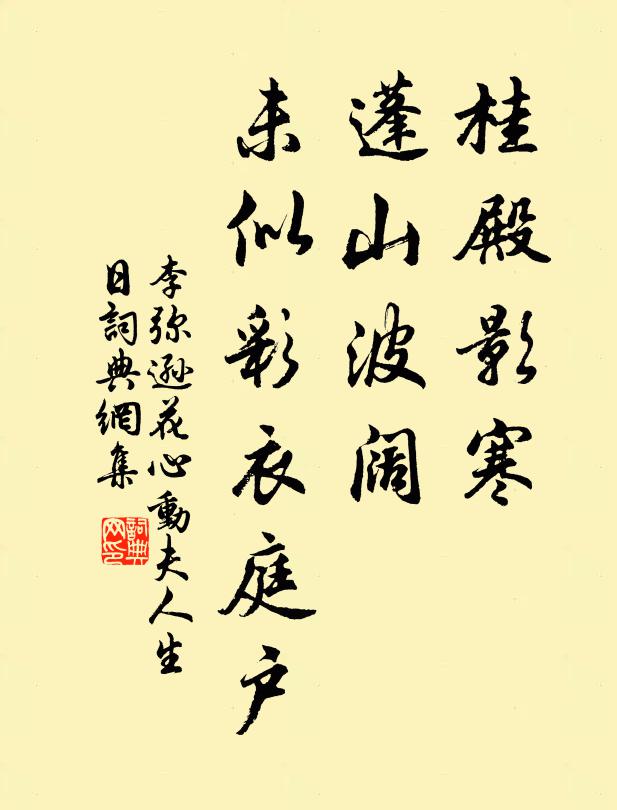 桂殿影寒
蓬山波闊
未似彩衣庭戶
李弥遜花心動夫人生
日詞典網集
詞典
网印